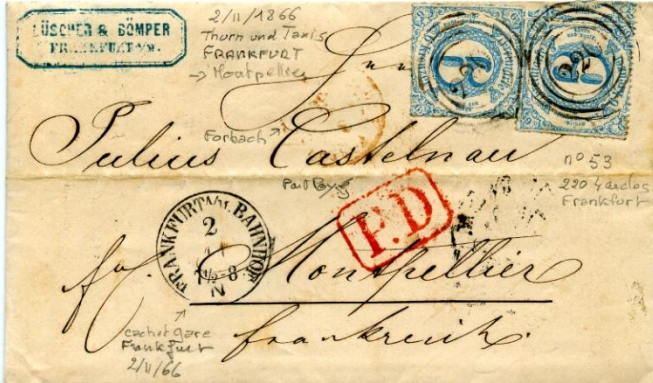 LÜSCHER & BÖMPER
FRANKFURT a/M.
2/11/1866
Thurn und Taxis
FRANKFURT
→ Montpellier
Forbach
Julius Castelnau
n° 53
220 4 cercles
Frankfurt
Port Payé
P.D
FRANKFURT a/M. BAHNHOF
2
N
Montpellier
frankreich.
cachet gare
Frankfurt
2/11/66